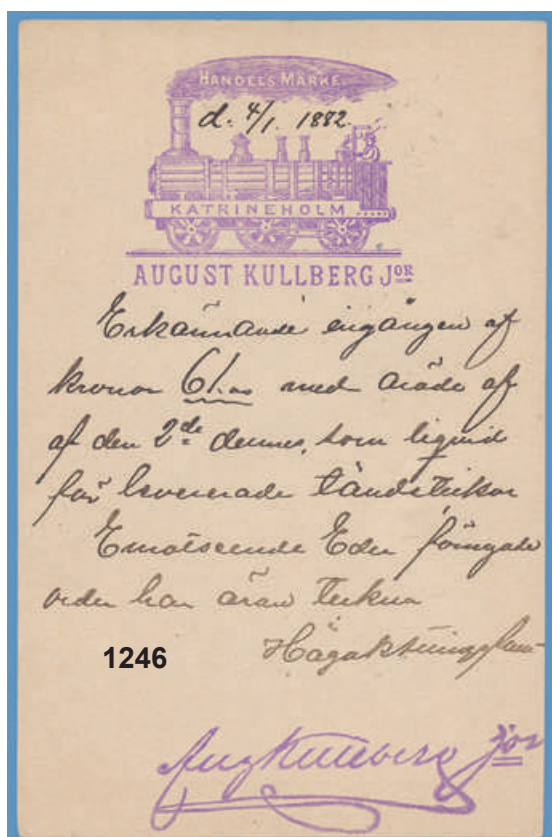 HANDELS MÄRKE
d. 4/1 1882.
KATRINEHOLM
AUGUST KULLBERG JOR
Erkännande ingången af
kronor 61.00 med ärade af
af den 2de dennes, som liquid
för levererade tändstickor
Emotseende Eder förnyade
order har äran teckna
1246
Högaktningsfull
Aug Kullberg Jor